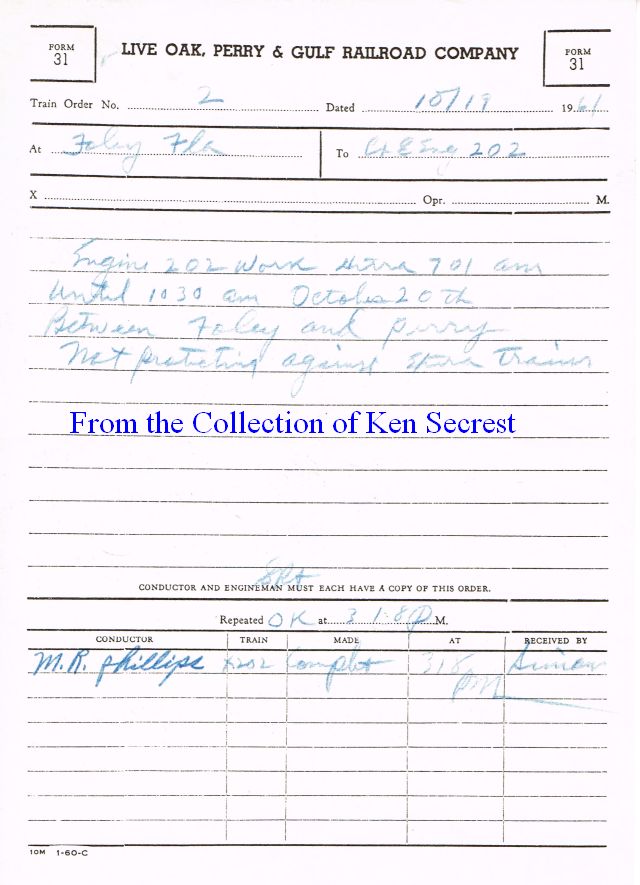 FORM 31
LIVE OAK, PERRY & GULF RAILROAD COMPANY
FORM 31
Train Order No. 2 Dated 10/19 1961
At Foley Fla To C&Eng 202
X Opr. M.
Engine 202 Work Extra 701 am
Until 1030 am October 20th
Between Foley and Perry
Not protecting against Extra Trains
From the Collection of Ken Secrest
CONDUCTOR AND ENGINEMAN MUST EACH HAVE A COPY OF THIS ORDER.
Repeated OK at 318P M.
CONDUCTOR TRAIN MADE AT RECEIVED BY
M.R. Phillips X202 Complet 318 PM
10M 1-60-C